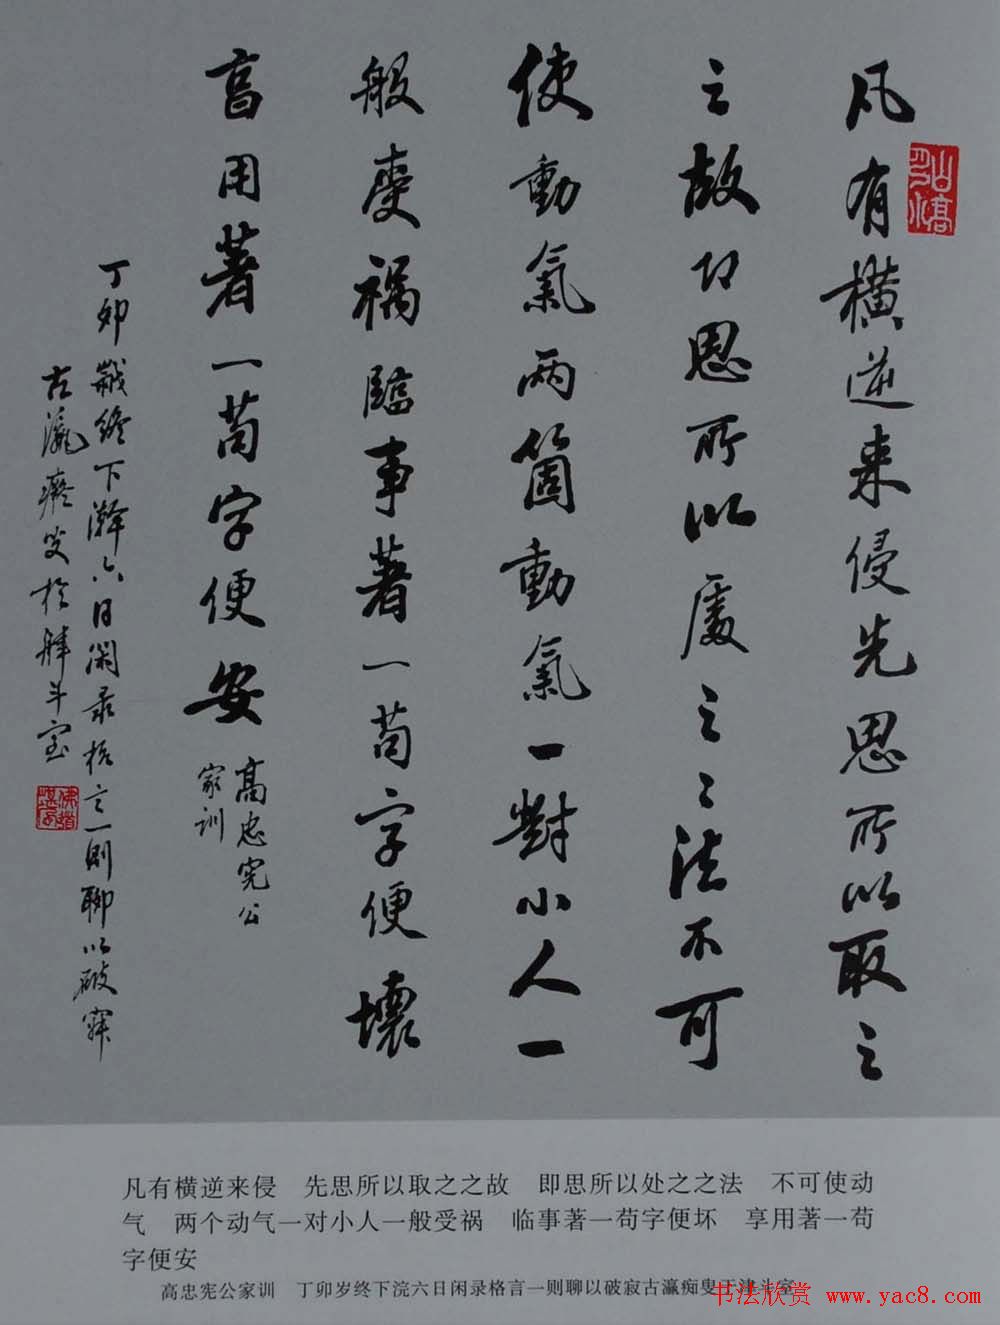 凡有橫逆来侵先思所以取之
之故即思所以處之之法不可
使動氣兩箇動氣一對小人一
般受禍臨事著一苟字便壞
享用著一苟字便安
高忠宪公
家训
丁卯歲終下澣六日闲录格言一则聊以破寂
古瀛癡叟於
斗室
凡有横逆来侵　先思所以取之之故　即思所以处之之法　不可使动
气　两个动气一对小人一般受祸　临事著一苟字便坏　享用著一苟
字便安
高忠宪公家训　丁卯岁终下浣六日闲录格言一则聊以破寂古瀛痴叟于津斗室
书法欣赏 www.yac8.com